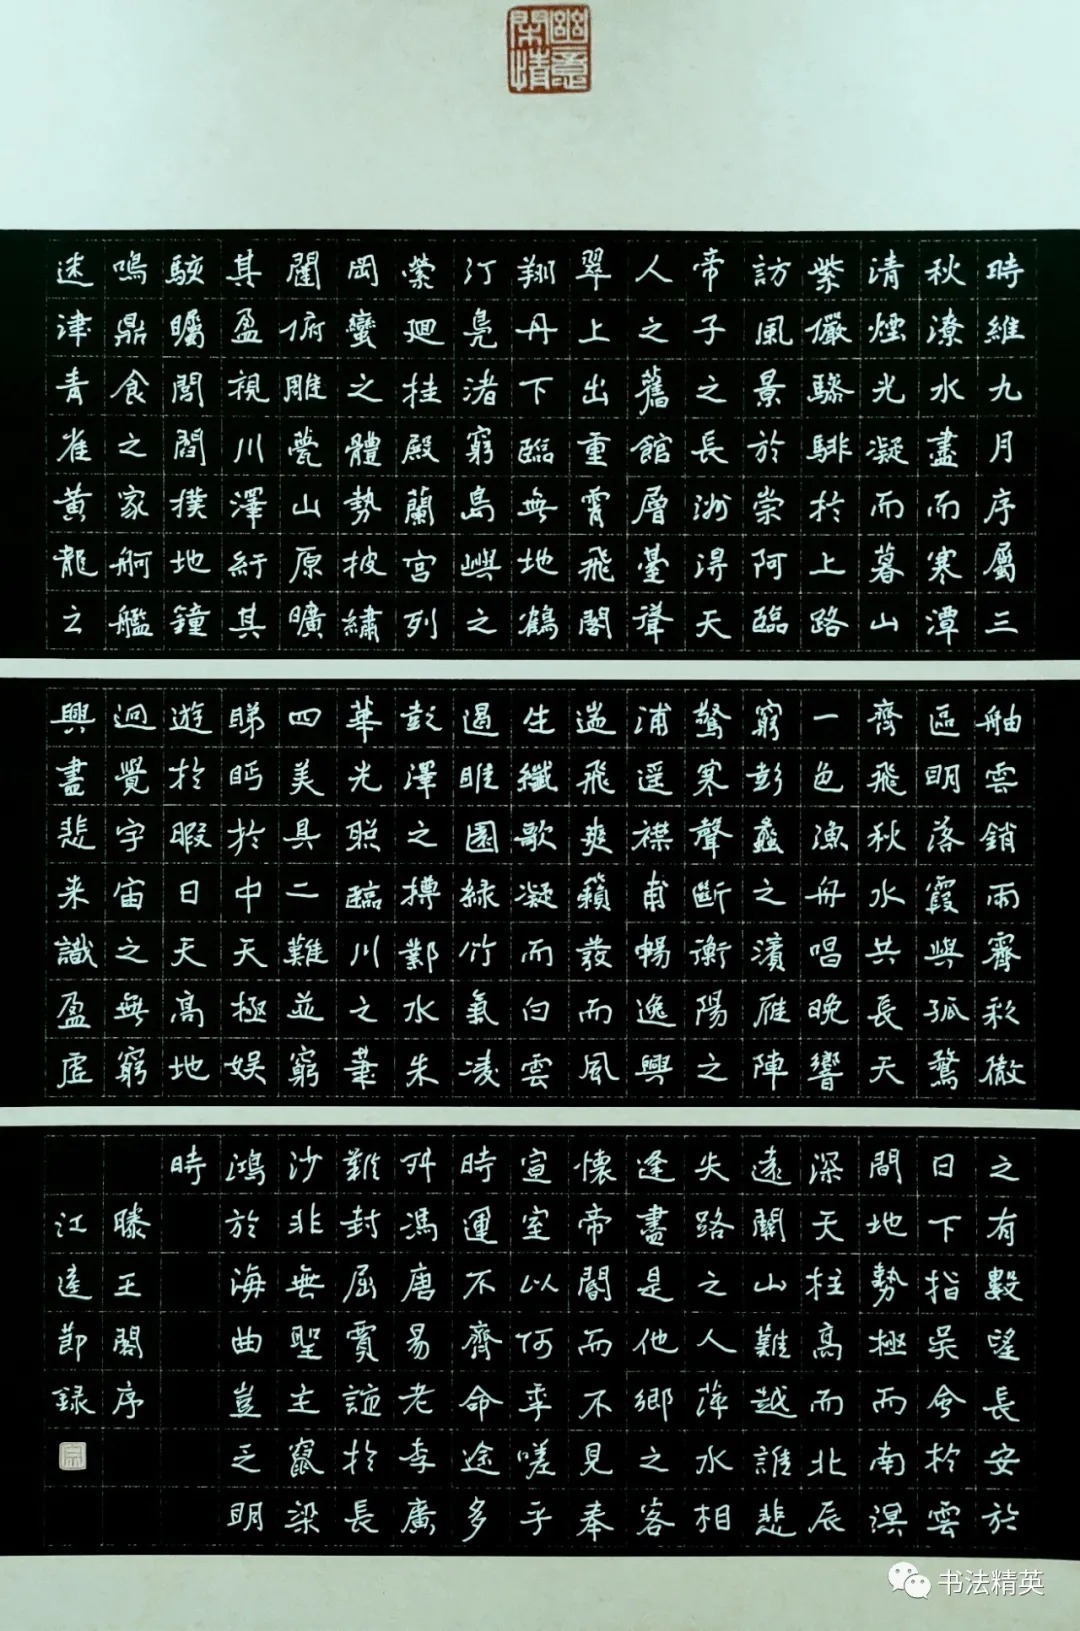 幽意
閑情
時維九月序屬三
秋潦水盡而寒潭
清煙光凝而暮山
紫儼驂騑於上路
訪風景於崇阿臨
帝子之長洲得天
人之舊館層臺聳
翠上出重霄飛閣
翔丹下臨無地鶴
汀鳧渚窮島嶼之
縈迴桂殿蘭宮列
岡巒之體勢披繡
闥俯雕甍山原曠
其盈視川澤紆其
駭矚閭閻撲地鐘
鳴鼎食之家舸艦
迷津青雀黃龍之
舳雲銷雨霽彩徹
區明落霞與孤鶩
齊飛秋水共長天
一色漁舟唱晚響
窮彭蠡之濱雁陣
驚寒聲斷衡陽之
浦遥襟甫暢逸興
遄飛爽籟發而風
生纖歌凝而白雲
遏睢園緑竹氣凌
彭澤之樽鄴水朱
華光照臨川之筆
四美具二難並窮
睇眄於中天極娛
遊於暇日天高地
迥覺宇宙之無窮
興盡悲来識盈虛
之有數望長安於
日下指吳會於雲
間地勢極而南溟
深天柱高而北辰
遠關山難越誰悲
失路之人萍水相
逢盡是他鄉之客
懷帝閽而不見奉
宣室以何年嗟乎
時運不齊命途多
舛馮唐易老李廣
難封屈賈誼於長
沙非無聖主竄梁
鴻於海曲豈乏明
時
滕王閣序
江達節録
书法精英